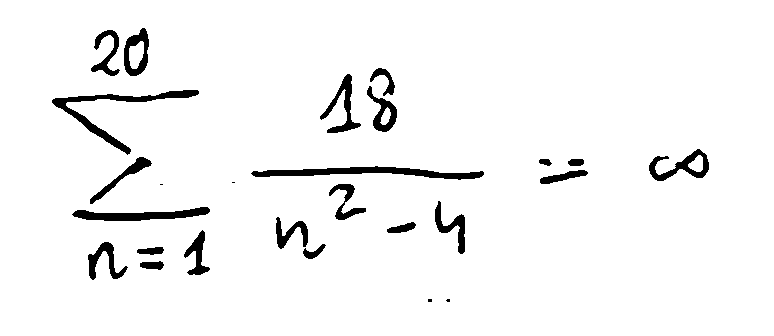 \sum_{n=1}^{20} \frac{18}{n^2-4} = \infty